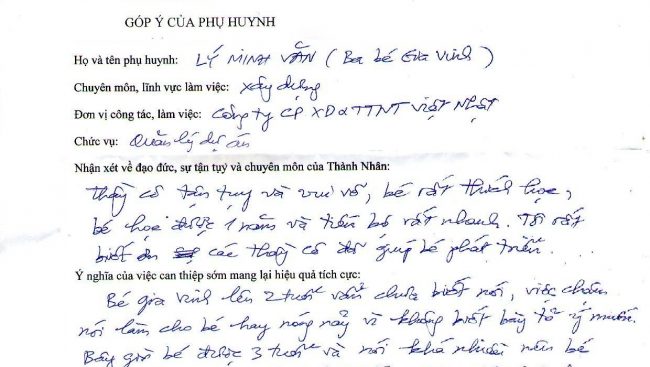 GÓP Ý CỦA PHỤ HUYNH
Họ và tên phụ huynh: LÝ MINH VĂN ( Ba bé Gia Vinh )
Chuyên môn, lĩnh vực làm việc: Xây dựng
Đơn vị công tác, làm việc: Công ty CP XD & TTNT Việt Nhật
Chức vụ: Quản lý dự án
Nhận xét về đạo đức, sự tận tuỵ và chuyên môn của Thành Nhân:
Thầy cô tận tụy và vui vẻ, bé rất thích học,
bé học được 1 năm và tiến bộ rất nhanh. Tôi rất
biết ơn các thầy cô đã giúp bé phát triển.
Ý nghĩa của việc can thiệp sớm mang lại hiệu quả tích cực:
Bé gia vinh lên 2 tuổi vẫn chưa biết nói, việc chậm
nói làm cho bé hay nóng nảy vì không biết bày tỏ ý muốn.
Bây giờ bé được 3 tuổi và nói khá nhiều nên bé